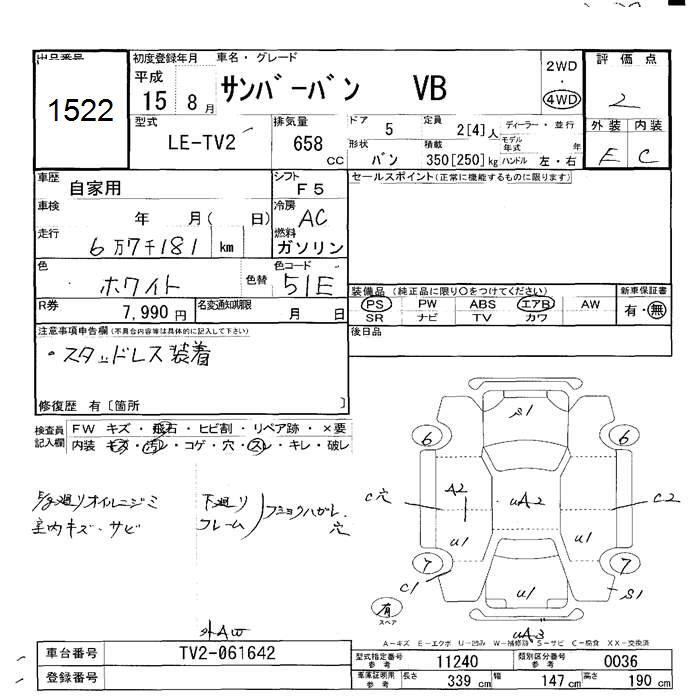 出品番号
1522
初度登録年月 車名・グレード
平成
15 8月
サンバーバン VB
2WD
・
4WD
評価点
2
型式
LE-TV2
排気量
658
CC
ドア
5
定員
2[4]人
ディーラー・並行
モデル年式 年
形状
バン
積載
350[250]kg
ハンドル 左・右
外装 内装
E C
車歴
自家用
シフト
F5
セールスポイント(正常に機能するものに限ります)
車検
年 月( 日)
冷房
AC
走行
6万7千181 km
燃料
ガソリン
色
ホワイト
色替
色コード
51E
装備品(純正品に限り○をつけてください)
新車保証書
PS PW ABS エアB AW
SR ナビ TV カワ
有・無
R券
7,990円
名変通知期限
月 日
後日品
注意事項申告欄(不具合内容等は具体的に記入して下さい)
・スタッドレス装着
修復歴 有〔箇所 〕
検査員記入欄
FW キズ・飛石・ヒビ割・リペア跡・×要
内装 キズ・汚レ・コゲ・穴・スレ・キレ・破レ
廻りオイルニジミ
室内キズ、サビ
下廻り
フレーム
穴
S1
6 6
C穴
A2
uA2
C2
u1
u1
7 7
C1
u1
S1
有
スペア
uA3
A-キズ E-エクボ U-凹み W-補修跡 S-サビ C-腐食 XX-交換済
外AW
車台番号
TV2-061642
登録番号
型式指定番号
参考
11240
類別区分番号
参考
0036
車庫証明用
参考
長さ
339 cm
幅
147 cm
高さ
190 cm